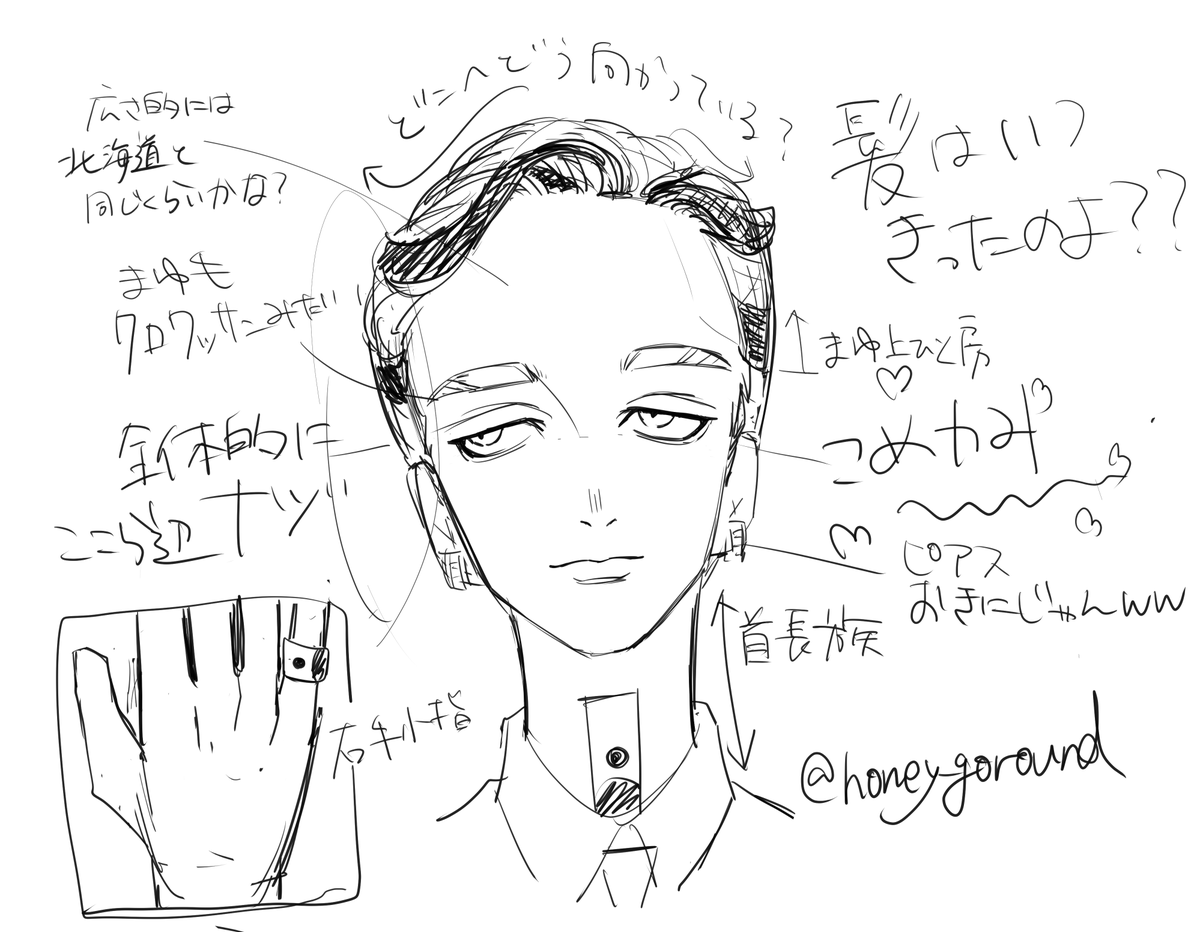 どこへどう向かっている?
広さ的には
北海道と
同じくらいかな?
髪はいつ
きったのよ??
まゆも
クロワッサンみたい
まゆ上ひと房
♡
こめかみ
全体的に
ここら辺ナッツ
ピアス
おきにじゃんww
首長族
右手小指
@honey-goround